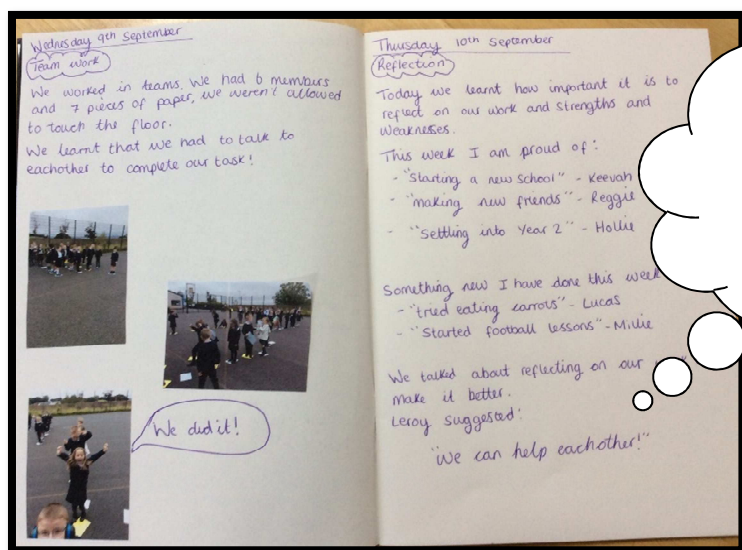 Wednesday 9th September
Team work
We worked in teams. We had 6 members
and 7 pieces of paper, we weren't allowed
to touch the floor.
We learnt that we had to talk to
eachother to complete our task!
We did it!
Thursday 10th September
Reflection
Today we learnt how important it is to
reflect on our work and strengths and
weaknesses.
This week I am proud of:
- "Starting a new school" - Keevah
- "making new friends" - Reggie
- "Settling into Year 2" - Hollie
Something new I have done this week
- "tried eating carrots" - Lucas
- "Started football lessons" - Millie
We talked about reflecting on our
make it better.
Leroy suggested:
"We can help eachother!"